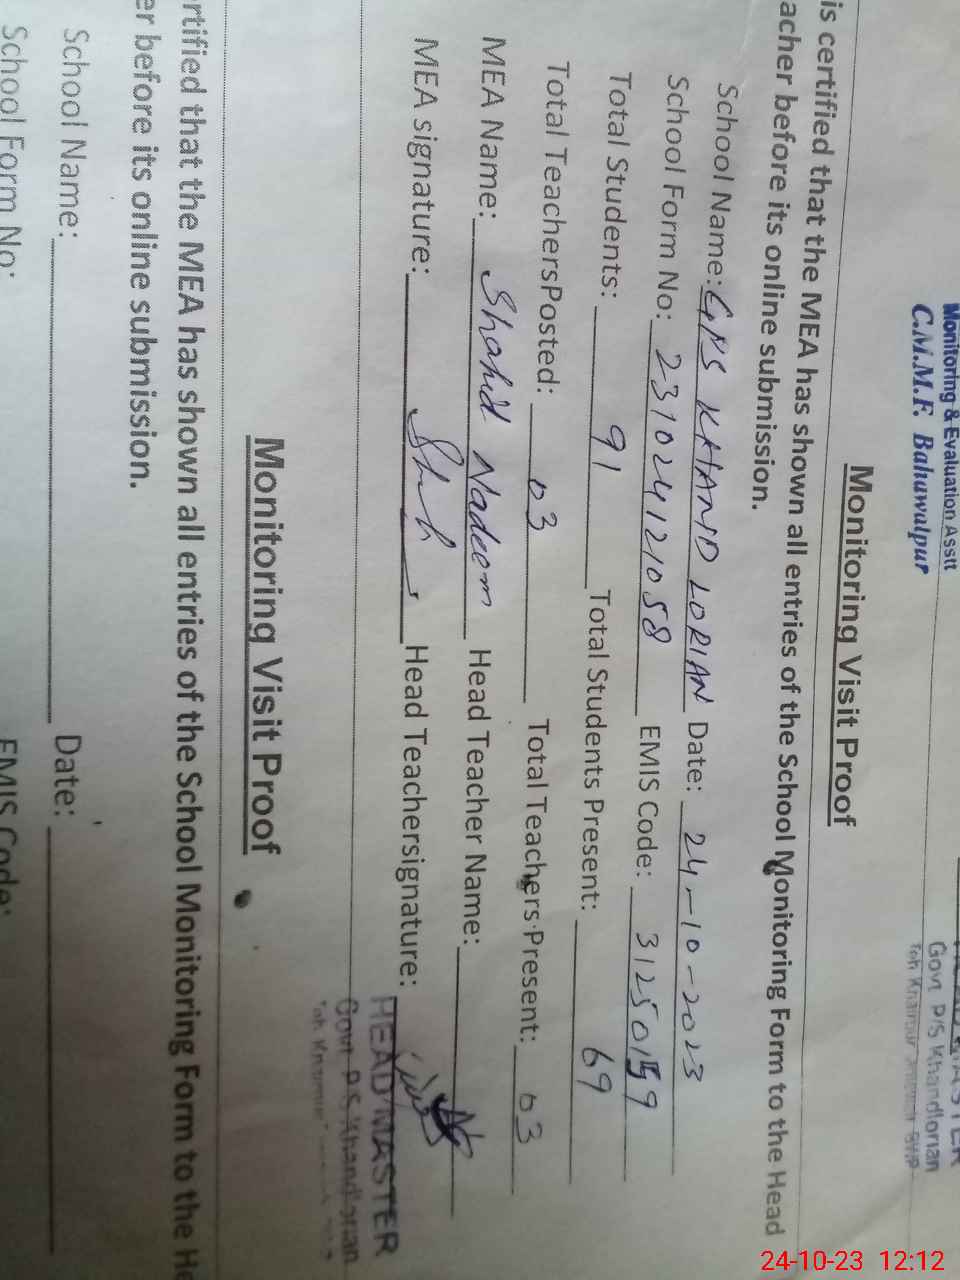 Monitoring & Evaluation Asstt
C.M.M.F. Bahawalpur
Govt P/S Khandlorian
Monitoring Visit Proof
is certified that the MEA has shown all entries of the School Monitoring Form to the Head
acher before its online submission.
School Name: GPS KHAND LORIAN Date: 24-10-2023
School Form No: 231024121058 EMIS Code: 31250159
Total Students: 91 Total Students Present: 69
Total TeachersPosted: 03 Total Teachers Present: 03
MEA Name: Shahid Nadeem Head Teacher Name:
MEA signature: Head Teachersignature:
HEAD MASTER
Govt P.S Khandlorian
Monitoring Visit Proof
rtified that the MEA has shown all entries of the School Monitoring Form to the He
er before its online submission.
School Name: Date:
School Form No: EMIS Code:
24-10-23 12:12